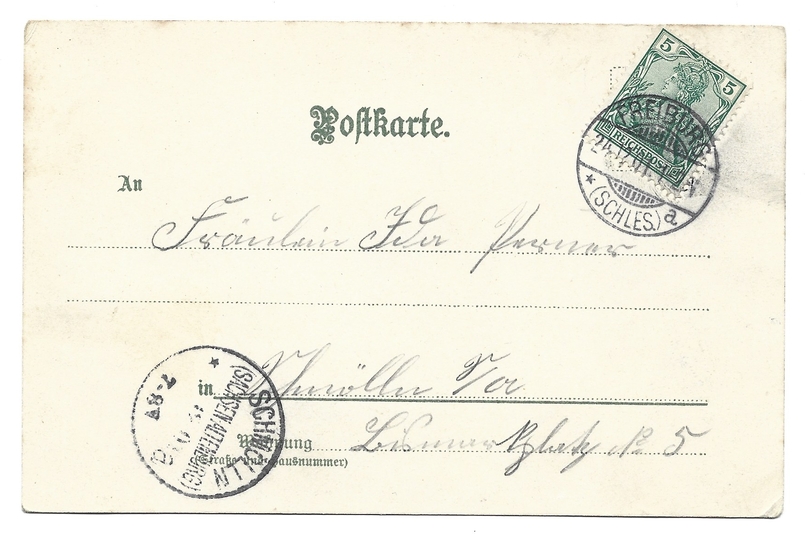 5 5
REICHSPOST
FREIBURG
(SCHLES.) a
Postkarte.
An
Fräulein Ida Perner
in Schmölln S/a
Wohnung Bismarkplatz No 5
(Straße und Hausnummer)
SCHMÖLLN
(SACHSEN-ALTENBURG)
7-8V